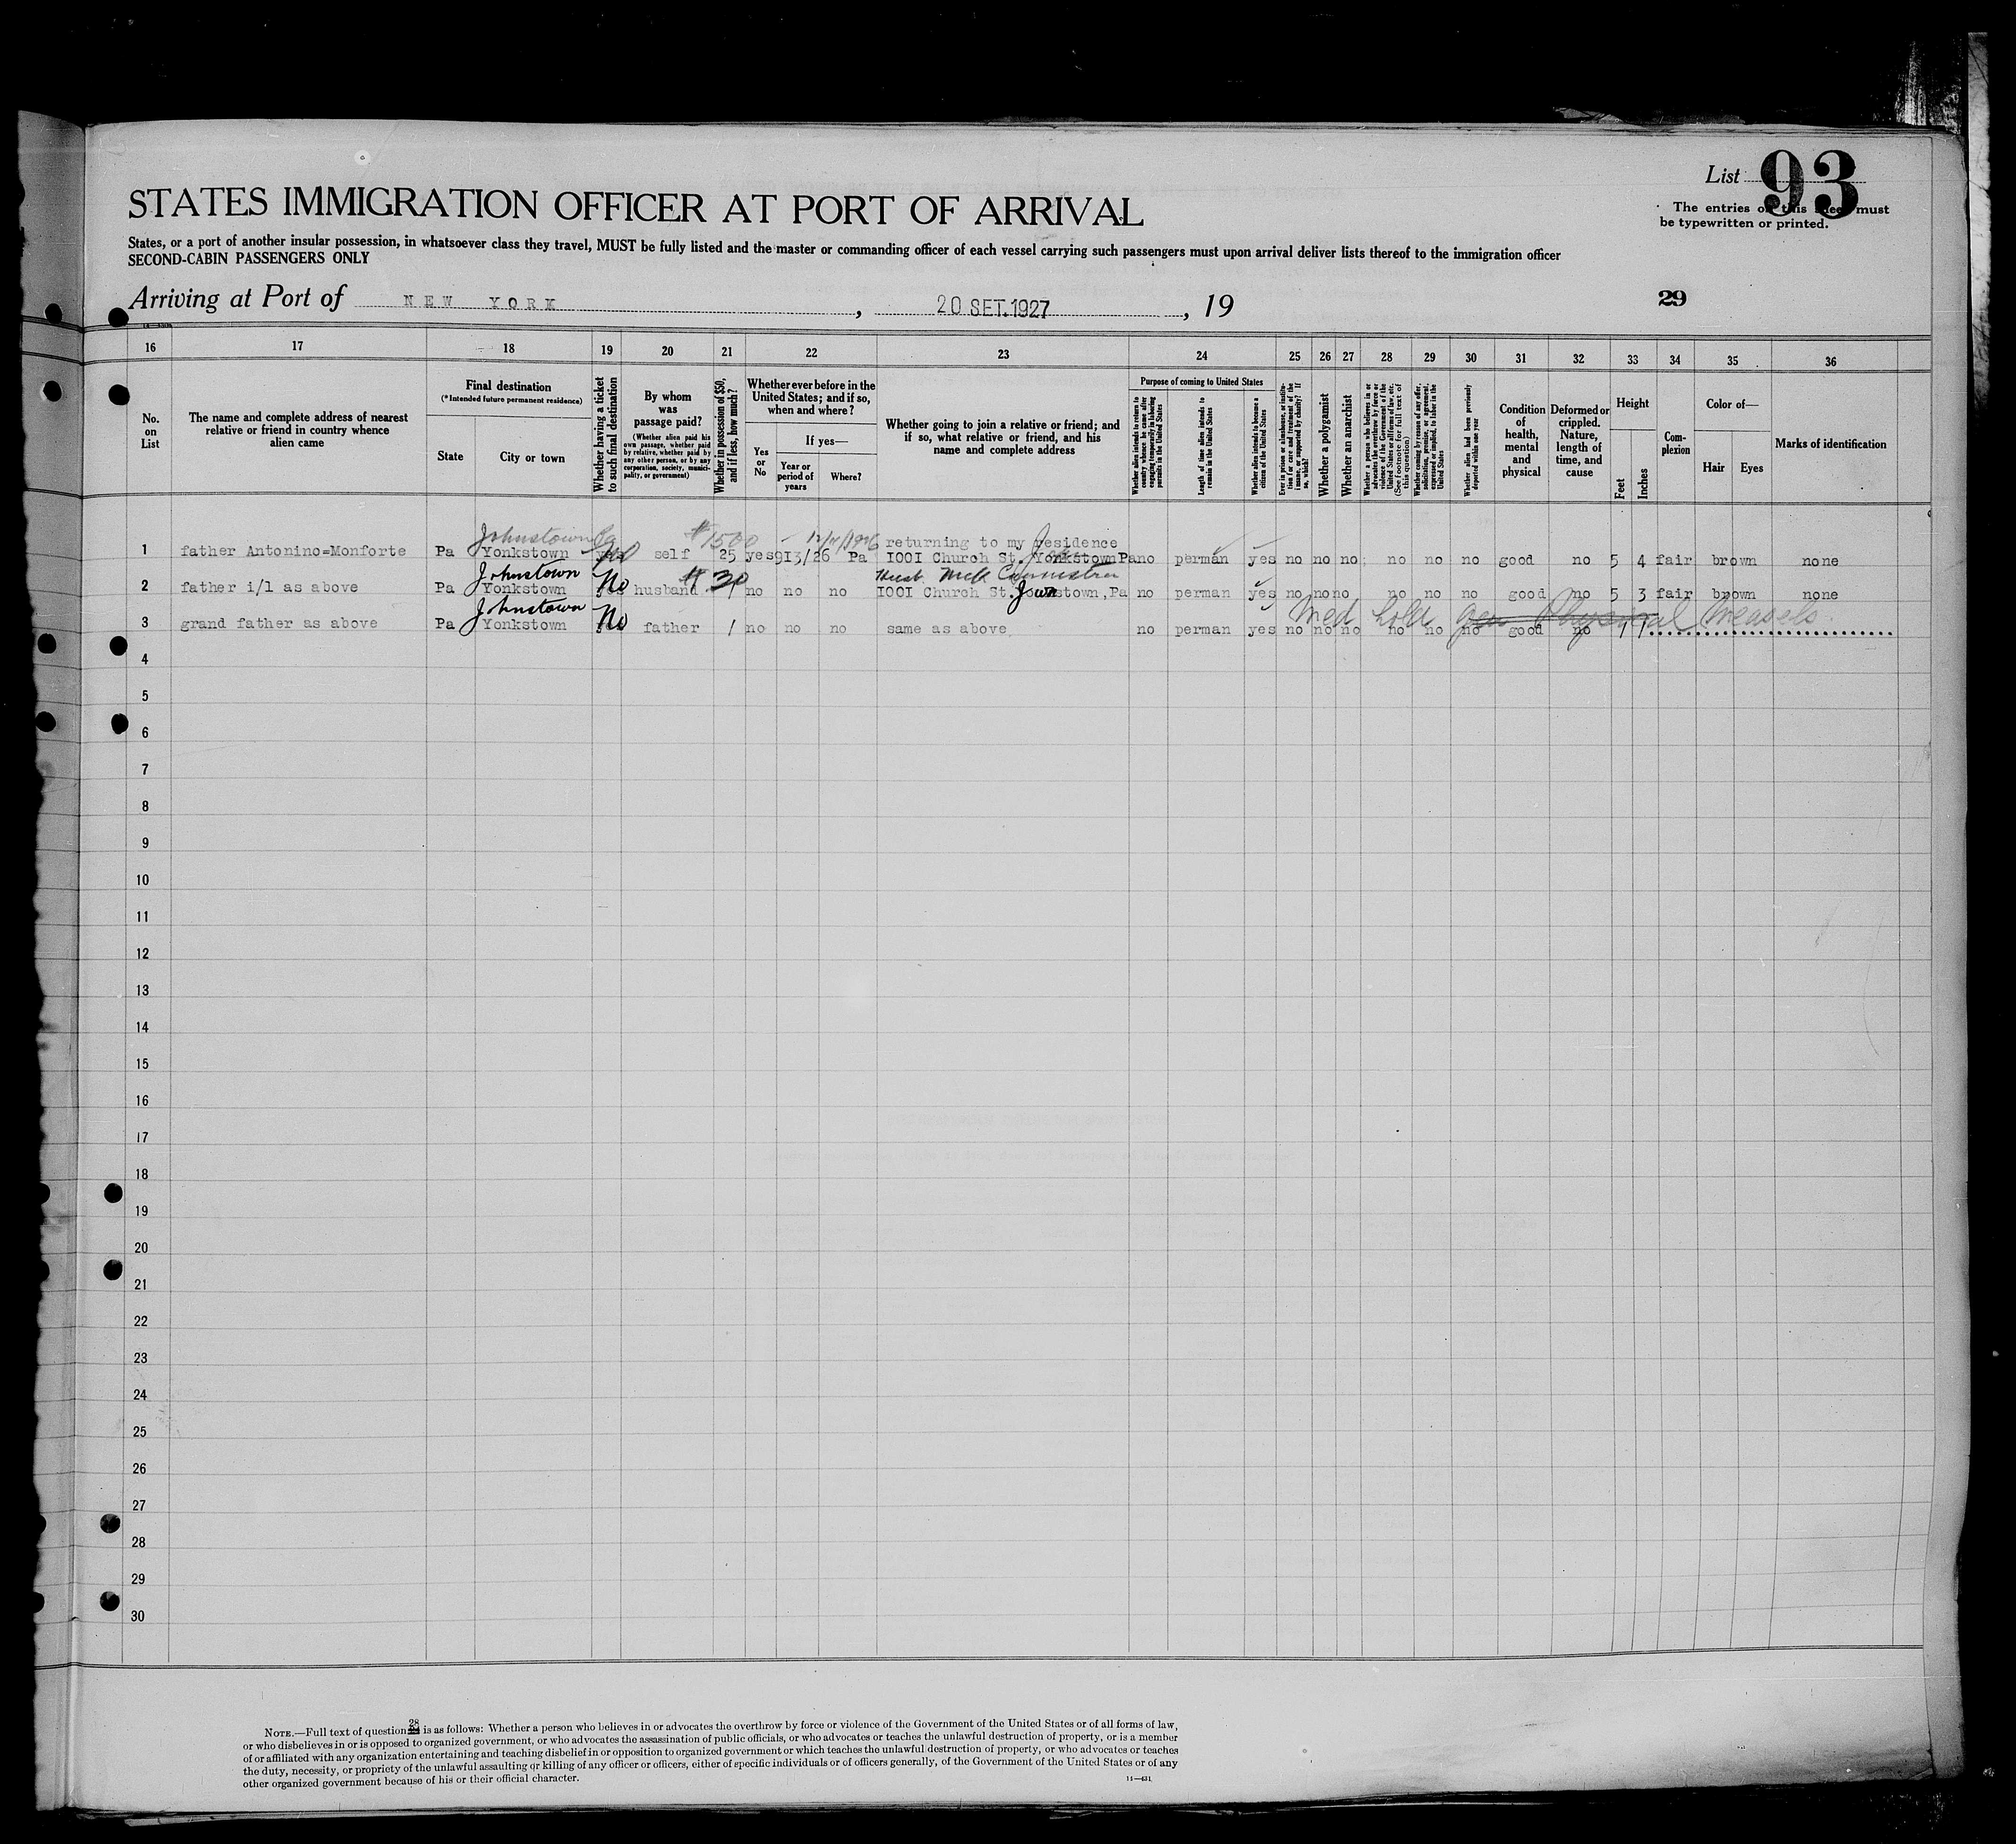 List 93
STATES IMMIGRATION OFFICER AT PORT OF ARRIVAL
The entries on this sheet must
be typewritten or printed.
States, or a port of another insular possession, in whatsoever class they travel, MUST be fully listed and the master or commanding officer of each vessel carrying such passengers must upon arrival deliver lists thereof to the immigration officer
SECOND-CABIN PASSENGERS ONLY
Arriving at Port of NEW YORK , 20 SET.1927 , 19 29
16 17 18 19 20 21 22 23 24 25 26 27 28 29 30 31 32 33 34 35 36
No. on List
The name and complete address of nearest relative or friend in country whence alien came
Final destination
(*Intended future permanent residence)
State
City or town
Whether having a ticket to such final destination
By whom was passage paid?
(Whether alien paid his own passage, whether paid by relative, whether paid by any other person, or by any corporation, society, municipality, or government)
Whether in possession of $50, and if less, how much?
Whether ever before in the United States; and if so, when and where?
Yes or No
If yes—
Year or period of years
Where?
Whether going to join a relative or friend; and if so, what relative or friend, and his name and complete address
Purpose of coming to United States
Whether alien intends to return to country whence he came after engaging temporarily in laboring pursuits in the United States
Length of time alien intends to remain in the United States
Whether alien intends to become a citizen of the United States
Ever in prison or almshouse, or institution for care and treatment of the insane, or supported by charity? If so, which?
Whether a polygamist
Whether an anarchist
Whether a person who believes in or advocates the overthrow by force or violence of the Government of the United States or all forms of law, etc. (See footnote for full text of this question)
Whether coming by reason of any offer, solicitation, promise, or agreement, expressed or implied, to labor in the United States
Whether alien had been previously deported within one year
Condition of health, mental and physical
Deformed or crippled. Nature, length of time, and cause
Height
Feet
Inches
Complexion
Color of—
Hair
Eyes
Marks of identification
Johnstown Pa $1500 - 12/11/1926 returning to my residence
1 father Antonino=Monforte Pa Yonkstown yes self 25 yes 913/26 Pa 1001 Church St. Yonkstown Pa no perman yes no no no no no no good no 5 4 fair brown none
Johnstown No $ 30 Husb.
2 father i/l as above Pa Yonkstown husband no no no 1001 Church St. Jownstown, Pa no perman yes no no no no no no good no 5 3 fair brown none
Johnstown No Med hold gen Physical measels
3 grand father as above Pa Yonkstown father no no no same as above no perman yes no no no no no no good no 1 1
4
5
6
7
8
9
10
11
12
13
14
15
16
17
18
19
20
21
22
23
24
25
26
27
28
29
30
NOTE.—Full text of question 28 is as follows: Whether a person who believes in or advocates the overthrow by force or violence of the Government of the United States or of all forms of law,
or who disbelieves in or is opposed to organized government, or who advocates the assassination of public officials, or who advocates or teaches the unlawful destruction of property, or is a member
of or affiliated with any organization entertaining and teaching disbelief in or opposition to organized government or which teaches the unlawful destruction of property, or who advocates or teaches
the duty, necessity, or propriety of the unlawful assaulting or killing of any officer or officers, either of specific individuals or of officers generally, of the Government of the United States or of any
other organized government because of his or their official character.
14—431